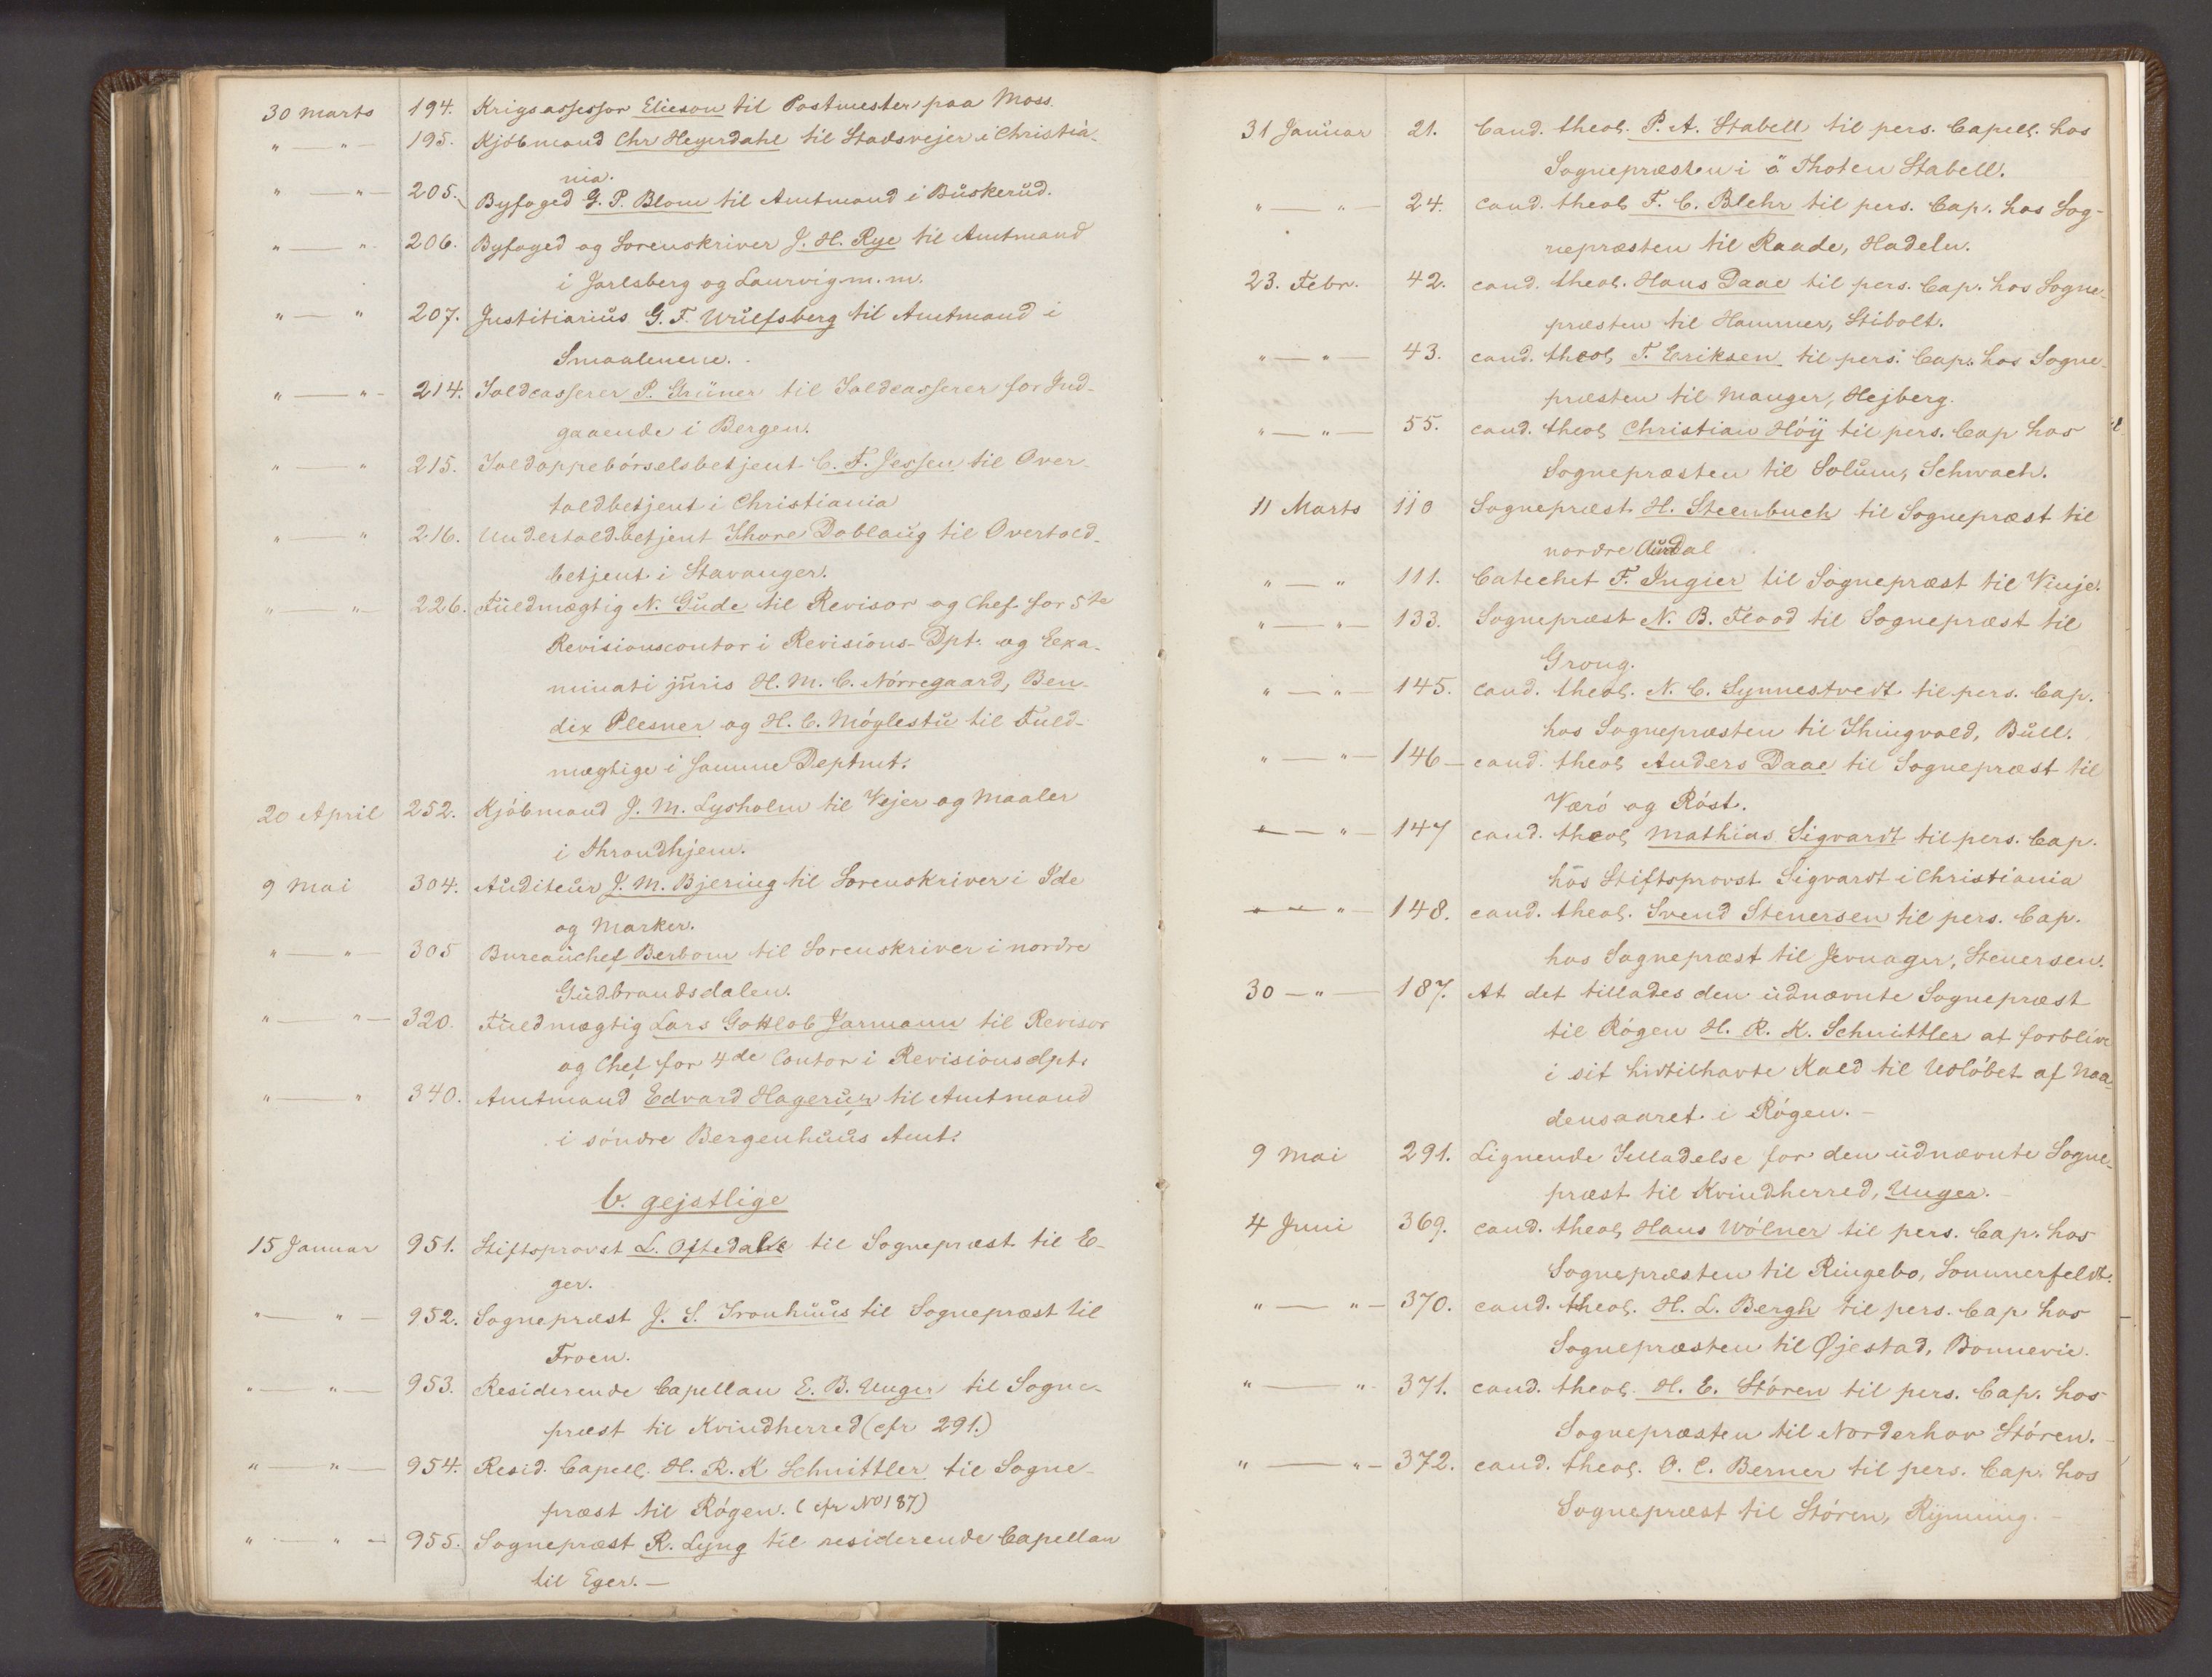 30 Marts 194. Krigsassessor Elieson til Postmester paa Moss.
" — " — 195. Kjöbmand Chr Heyerdahl til Stadsvejer i Christia-
nia.
" — " — 205. Byfoged G. P. Blom til Amtmand i Buskerud.
" — " 206. Byfoged og Sorenskriver J. H. Rye til Amtmand
i Jarlsberg og Laurvig m. m.
" — " 207. Justitiarius G. F. Wulfsberg til Amtmand i
Smaalenene.
" — " - 214. Toldcasserer P. Grüner til Toldcasserer for Ind-
gaaende i Bergen.
" — " 215. Toldoppebörselsbetjent C. F. Jessen til Over-
toldbetjent i Christiania
" — " 216. Undertoldbetjent Thore Doblaug til Overtold-
betjent i Stavanger.
" — " 226. Fuldmægtig N. Gude til Revisor og Chef for 5te
Revisionscontor i Revisions-Dpt. og Eexa-
minati juris H. M. C. Nörregaard, Ben-
dix Plesner og H. C. Möglestu til Fuld-
mægtige i samme Deptmt.
20 April 252. Kjöbmand J. M. Lysholm til Vejer og Maaler
i Throndhjem.
9 Mai 304. Auditeur J. M. Bjering til Sorenskriver i Ide
og Marker.
" — " 305 Bureauchef Berbom til Sorenskriver i nordre
Gudbrandsdalen.
" — " — 320. Fuldmægtig Lars Gottlob Jarmann til Revisor
og Chef for 4de Contor i Revisionsdpt.
" — " 340. Amtmand Edvard Hagerup til Amtmand
i söndre Bergenhuus Amt.
b. gejstlige
15 Januar 951. Stiftsprovst L. Oftedahl til Sognepræst til E-
ger.
" — " — 952. Sognepræst J. S. Tronhuus til Sognepræst til
Froen.
" — " — 953. Residerende Capellan E. B. Unger til Sogne-
præst til Kvindherred (cfr 291.)
" — " — 954. Resid. Capell. H. R. K Schnittler til Sogne-
præst til Rögen. (cfr No 187)
" — " — 955. Sognepræst R. Lyng til residerende Capellan
til Eger. —
31 Januar 21. Cand. theol. P. A. Stabell til pers. Capell. hos
Sognepræsten i ö Thoten Stabell.
" — " — 24. Cand. theol F. C. Blehr til pers. Cap. hos Sog-
nepræsten til Raade, Hadeln.
23. Febr. 42. cand. theol. Hans Daae til pers. Cap. hos Sogne-
præsten til Hammer, Stibolt.
" — " — 43. cand. theol T. Eriksen til pers. Cap. hos Sogne-
præsten til Manger, Hejberg.
" — " — 55. cand. theol Christian Höÿ til pers. Cap hos
Sognepræsten til Solum, Schwach.
11 Marts 110 Sognepræst H. Steenbuch til Sognepræst til
nordre Aurdal
" — " 111. Catechet F. Ingier til Sognepræst til Vinje.
" — " — 133. Sognepræst N. B. Flood til Sognepræst til
Grong.
" — " — 145. cand. theol. N. C. Synnestvedt til pers. Cap.
hos Sognepræsten til Thingvold, Bull.
" — " — 146 — cand. theol Anders Daae til Sognepræst til
Værö og Röst.
" — " — 147 cand. theol Mathias Sigvardt til pers. Cap.
hos Stiftsprovst Sigvardt i Christiania
" — " — 148. cand. theol. Svend Stenersen til pers. Cap.
hos Sognepræst til Jevnager, Stenersen.
30 — " — 187. At det tillades den udnævnte Sognepræst
til Rögen H. R. K. Schnittler at forblive
i sit hidtilhavte Kald til Udlöbet af Naa
densaaret i Rögen. —
9 Mai 291. Lignende Tilladelse for den udnævnte Sogne-
præst til Kvindherred, Unger.
4 Juni 369. cand. theol Hans Wölner til pers. Cap. hos
Sognepræsten til Ringebo, Sommerfeldt.
" — " — 370. cand. theol. H. L. Bergh til pers. Cap hos
Sognepræsten til Øjestad, Bonnevie.
" — " - 371. cand. theol. H. E. Stören til pers. Cap. hos
Sognepræsten til Norderhov Stören.
" — " — 372. cand. theol. O. C. Berner til pers. Cap. hos
Sognepræst til Stören, Rynning. —